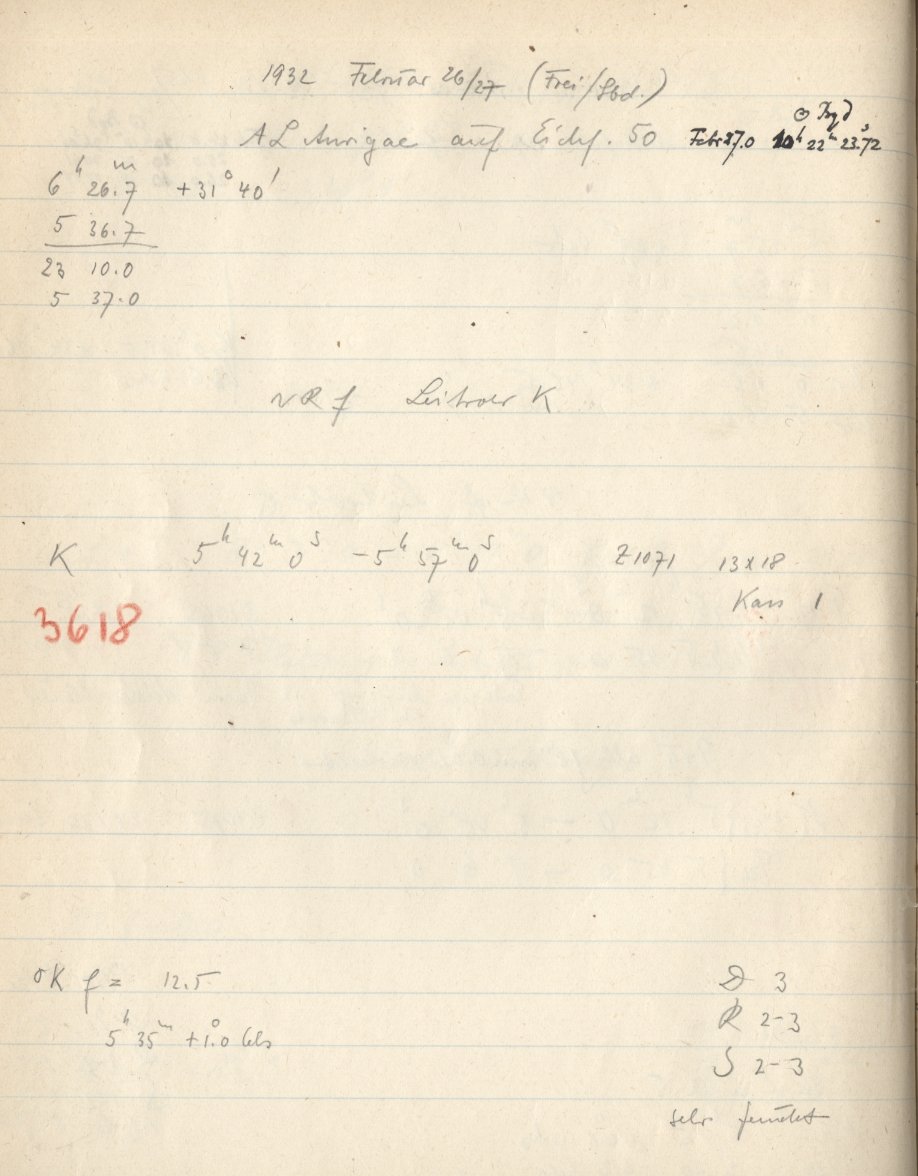 1932 Februar 26/27 (Frei/Sbd.)
AL Aurigae auf Eichf. 50 Febr 27.0 10h 22m 23.s72
6h 26.7m +31° 40'
5 36.7
23 10.0
5 37.0
f Leitrohr K
K 5h 42m 0s - 5h 57m 0s Z 1071 13x18
Kass 1
3618
OK f = 12.5
5h 35m +1.°0
D 3
R 2-3
S 2-3
sehr feucht